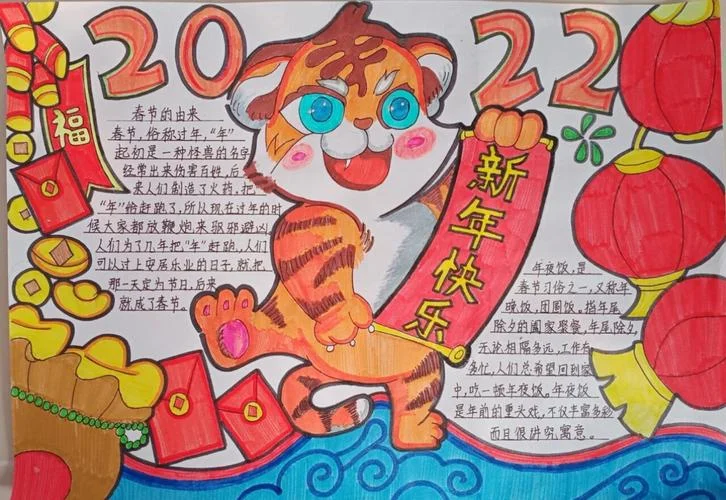 2022
福
春节的由来
春节,俗称过年,“年”
起初是一种怪兽的名字
经常出来伤害百姓,后
来人们制造了火药,把
“年”给赶跑了,所以现在过年的时
候大家都放鞭炮来驱邪避凶
人们为了几年把“年”赶跑,人们
可以过上安居乐业的日子,就把
那一天定为节日,后来
就成了春节。
新年快乐
年夜饭,是
春节习俗之一,又称年
晚饭,团圆饭。指年尾
除夕的阖家聚餐,年尾除夕,
无论相隔多远,工作有
多忙,人们总希望回到家
中,吃一顿年夜饭。年夜饭
是年前的重头戏,不仅丰富多彩
而且很讲究寓意。